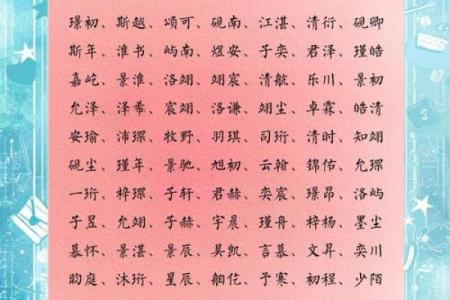 璟初、斯越、颂可、砚南、江湛、清衍、砚卿
斯年、淮书、屿南、煜安、子奕、君泽、瑾皓
嘉屹、景淮、洛翊、翊宸、清航、乐川、景初
允泽、泽希、宸翊、洛谦、翊尘、卓霖、皓清
安瑜、沛琛、牧野、羽琪、司珩、清时、知翊
砚尘、瑾年、景驰、旭初、云翰、锦佑、允琛
一珩、梓琛、子轩、君赫、奕宸、璟昂、洛屿
子昱、允翊、子赫、宇晨、瑾舟、梓杨、墨尘
慕怀、景湛、景辰、昊凯、言慕、文昇、奕川
昀庭、沐珩、星辰、舶亿、予寒、初程、少陌